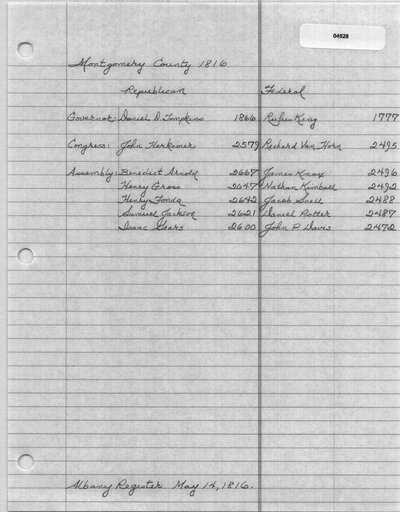 04528
Montgomery County 1816
Republican Federal
Governor: Daniel D. Tompkins 1866 Rufus King 1777
Congress: John Herkimer 2579 Richard Van Horn 2495
Assembly: Benedict Arnold 2667 James Knox 2496
Henry Gross 2647 Nathan Kimball 2492
Henry Fonda 2642 Jacob Snell 2488
Samuel Jackson 2621 Daniel Potter 2487
Isaac Sears 2600 John P. Davis 2472
Albany Register. May 14, 1816.